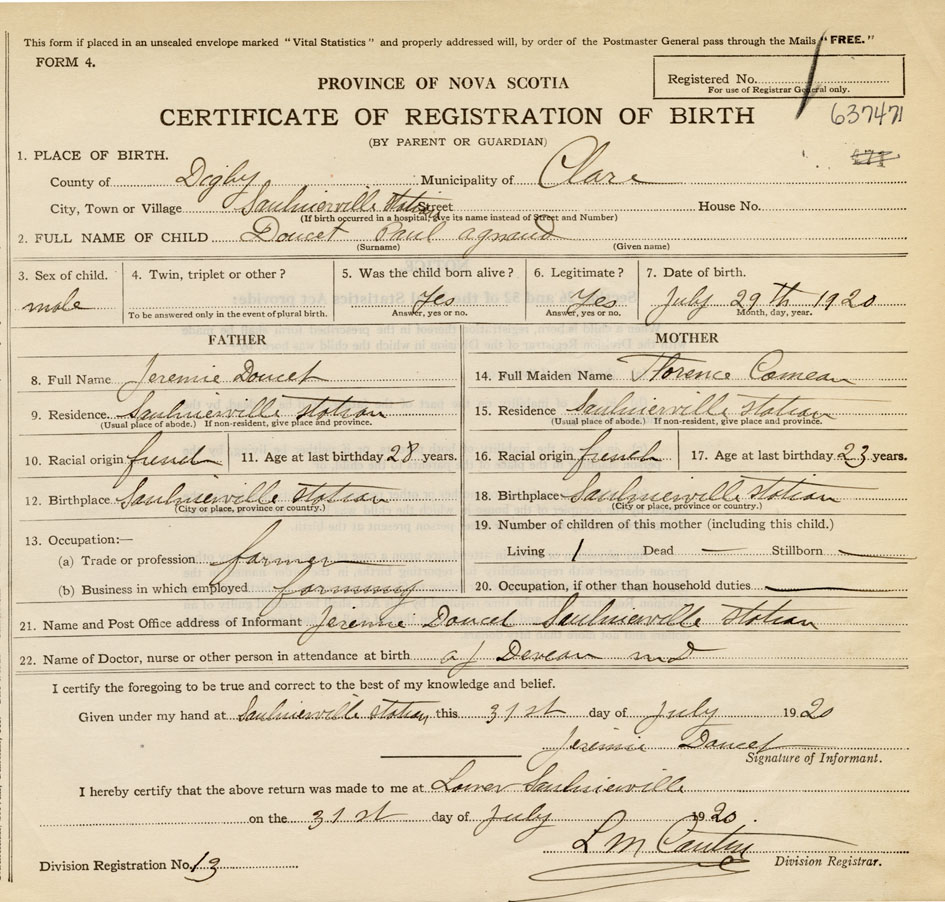 This form if placed in an unsealed envelope marked "Vital Statistics" and properly addressed will, by order of the Postmaster General pass through the Mails "FREE."
FORM 4.
Registered No.
For use of Registrar General only.
PROVINCE OF NOVA SCOTIA
CERTIFICATE OF REGISTRATION OF BIRTH
637471
(BY PARENT OR GUARDIAN)
1. PLACE OF BIRTH.
County of Digby Municipality of Clare
City, Town or Village Saulnierville Station Street House No.
(If birth occurred in a hospital, give its name instead of Street and Number)
2. FULL NAME OF CHILD Doucet Paul
(Surname) (Given name)
3. Sex of child. 4. Twin, triplet or other? 5. Was the child born alive? 6. Legitimate? 7. Date of birth.
male Yes Yes July 29th 1920
To be answered only in the event of plural birth. Answer, yes or no. Answer, yes or no. Month, day, year.
FATHER MOTHER
8. Full Name Jeremie Doucet 14. Full Maiden Name Florence Comeau
9. Residence Saulnierville station 15. Residence Saulnierville station
(Usual place of abode.) If non-resident, give place and province. (Usual place of abode.) If non-resident, give place and province.
10. Racial origin french 11. Age at last birthday 28 years. 16. Racial origin french 17. Age at last birthday 23 years.
12. Birthplace Saulnierville station 18. Birthplace Saulnierville station
(City or place, province or country.) (City or place, province or country.)
13. Occupation:— 19. Number of children of this mother (including this child.)
(a) Trade or profession farmer Living 1 Dead — Stillborn —
(b) Business in which employed farming 20. Occupation, if other than household duties —
21. Name and Post Office address of Informant Jeremie Doucet Saulnierville station
22. Name of Doctor, nurse or other person in attendance at birth a J Deveau md
I certify the foregoing to be true and correct to the best of my knowledge and belief.
Given under my hand at Saulnierville station this 31st day of July 1920
Jeremie Doucet
Signature of Informant.
I hereby certify that the above return was made to me at Lower Saulnierville
on the 31st day of July 1920.
L M
Division Registration No. 13 Division Registrar.